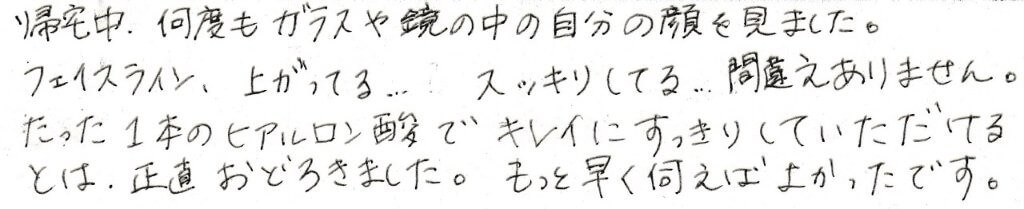 帰宅中、何度もガラスや鏡の中の自分の顔を見ました。
フェイスライン、上がってる… スッキリしてる…間違えありません。
たった1本のヒアルロン酸でキレイにすっきりしていただける
とは、正直おどろきました。もっと早く伺えばよかったです。